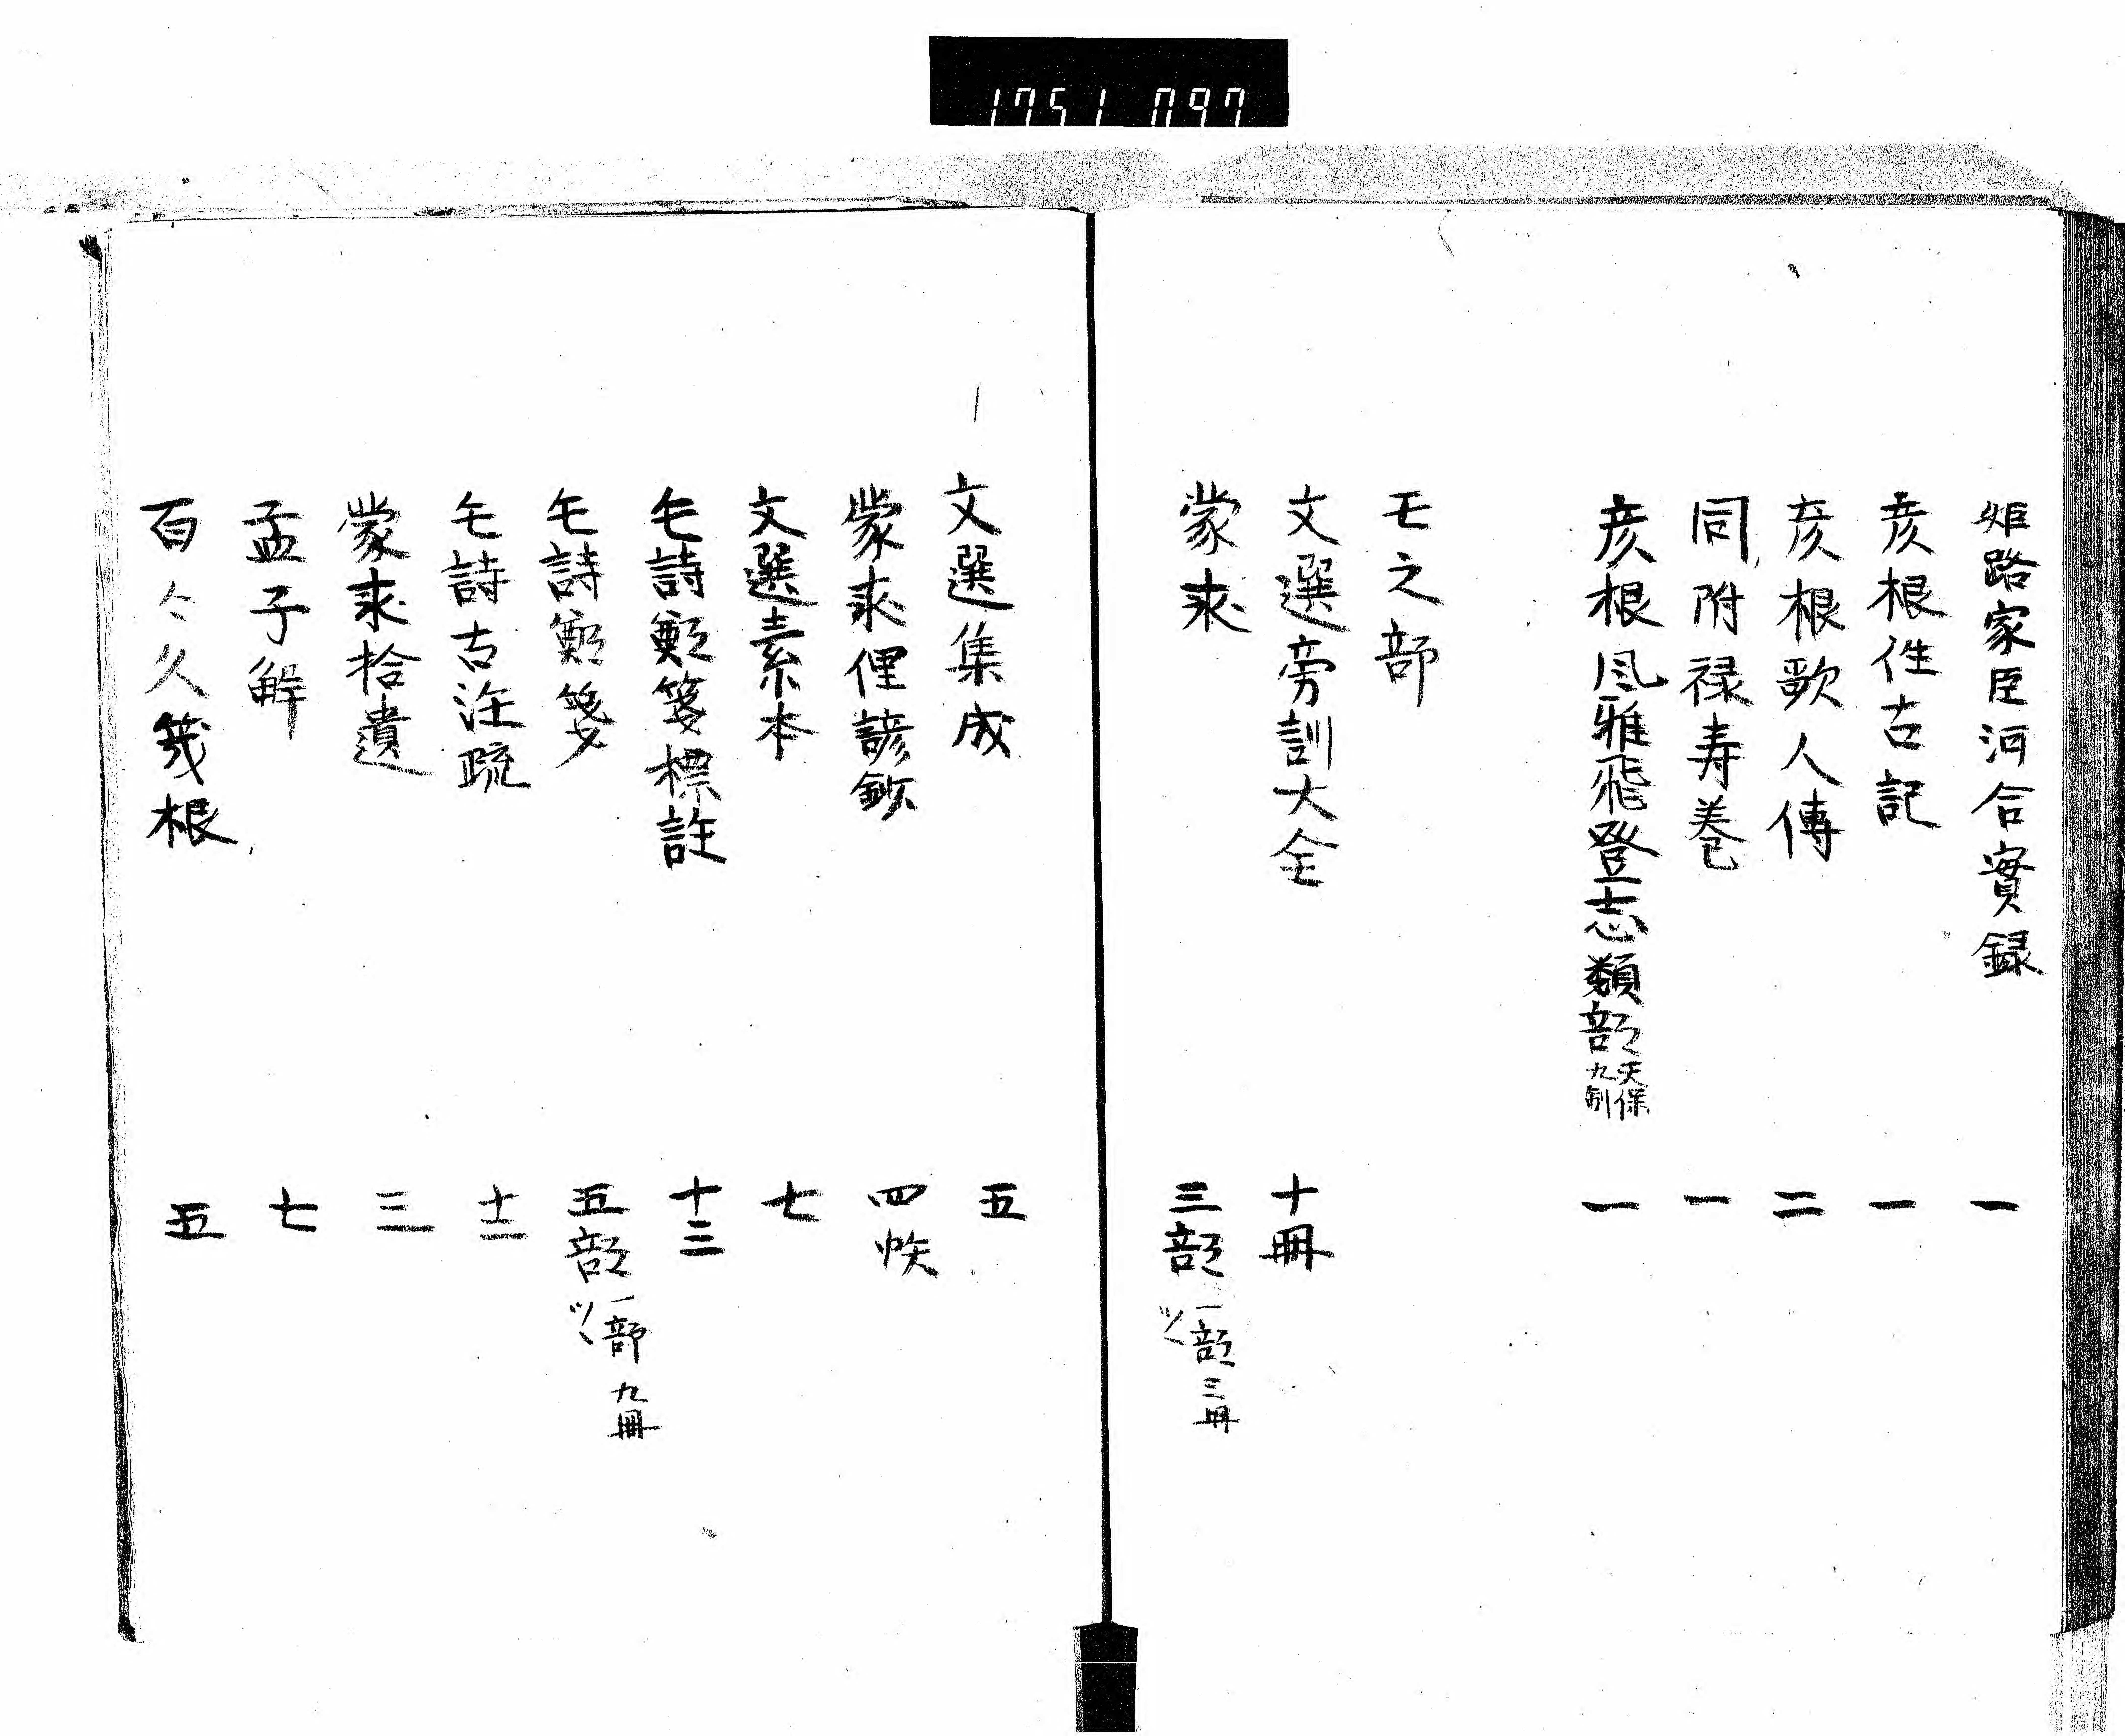 1751 097
姫路家臣河合實録 一
彦根往古記 一
彦根歌人傳 二
同附禄寿巻 一
彦根風雅飛登志類部 天保九制 一
モ之部
文選旁訓大全 十冊
蒙求 三部 一部三冊ツヽ
文選集成 五
蒙求俚諺鈔 四帙
文選素本 七
毛詩鄭箋標註 十三
毛詩鄭箋 五部 一部九冊ツヽ
毛詩古注疏 十二
蒙求拾遺 三
孟子解 七
百々久笈根 五